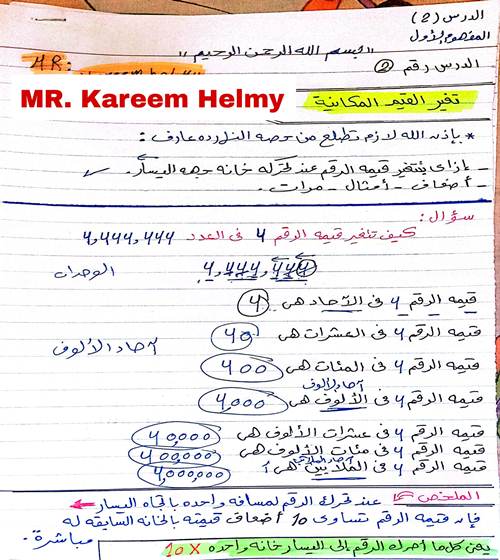 الدرس (2)
المفهوم الأول
"بسم الله الرحمن الرحيم"
الدرس رقم (2)
MR:
MR. Kareem Helmy
تغير القيم المكانية
* بإذن الله لازم تطلع من حصه النهارده عارف:
- إزاى بتتغير قيمه الرقم عند تحركه خانه جهه اليسار.
- أضعاف - أمثال - مرات.
سؤال:
كيف تتغير قيمه الرقم 4 فى العدد 4,444,444
4,444,444 الوحدات
قيمه الرقم 4 فى الآحاد هى 4
قيمه الرقم 4 فى العشرات هى 40
آحاد الألوف
قيمه الرقم 4 فى المئات هى 400
آحاد الألوف
قيمه الرقم 4 فى الألوف هى 4,000
قيمه الرقم 4 فى عشرات الألوف هى 40,000
قيمه الرقم 4 فى مئات الألوف هى 400,000
قيمه الرقم 4 فى الملايين هى 4,000,000
الملخص عند تحرك الرقم لمسافه واحده باتجاه اليسار
فإن قيمه الرقم تساوى 10 أضعاف قيمته بالخانه السابقه له
مباشرة.
يعنى كلما أحرك الرقم إلى اليسار خانه واحده 10x